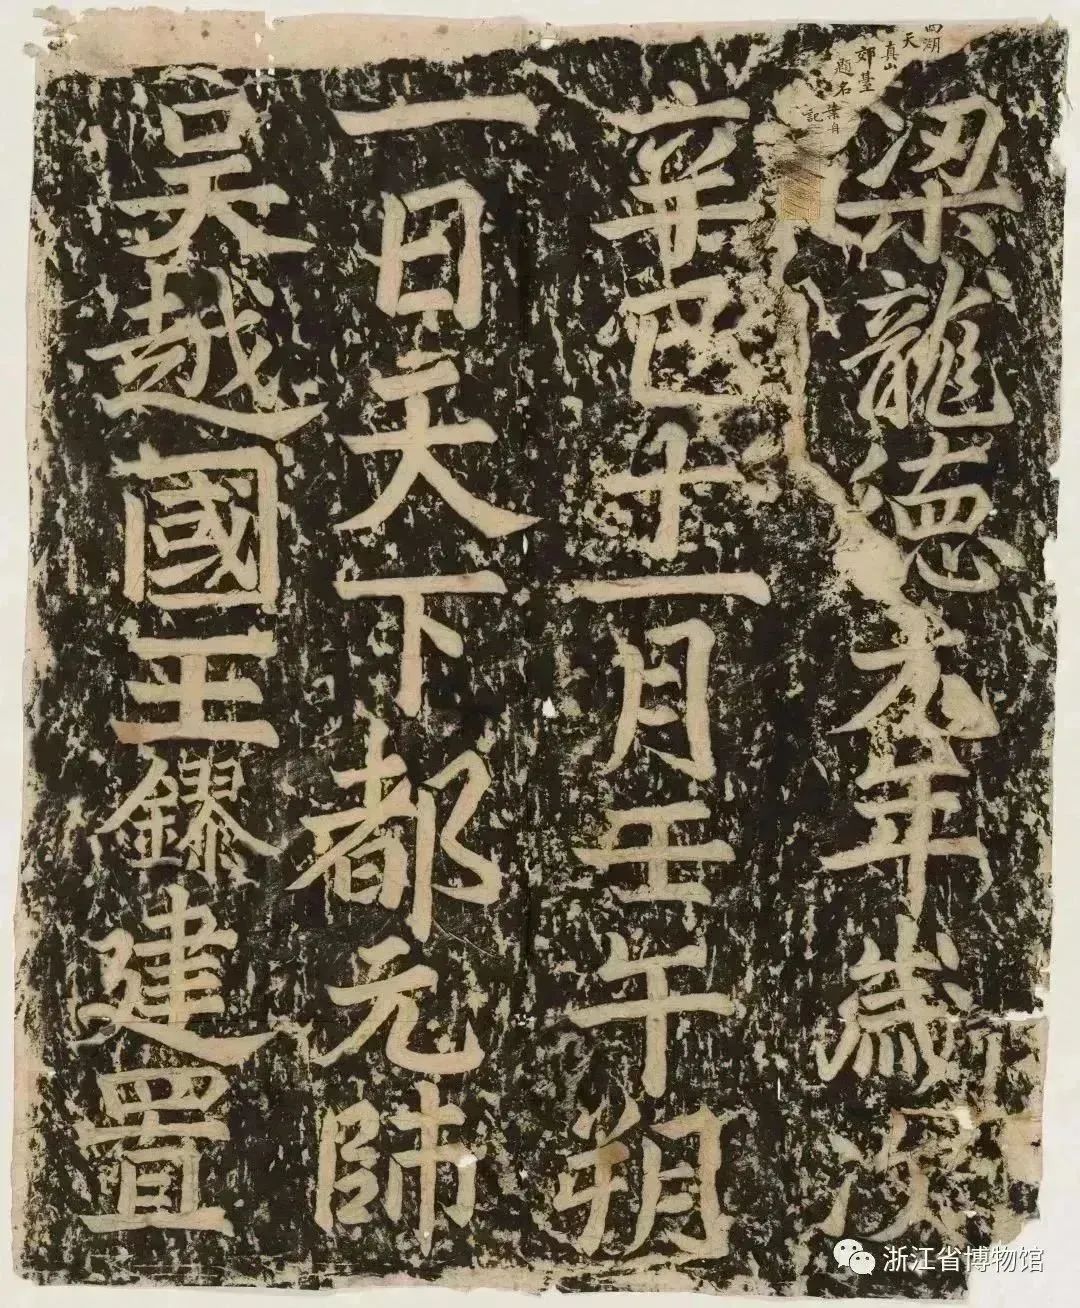 梁龍德元年歲次
辛巳十一月壬午朔
一日天下都元帥
吳越國王鏐建置
西湖
天真山
郊臺
題名
浙江省博物馆